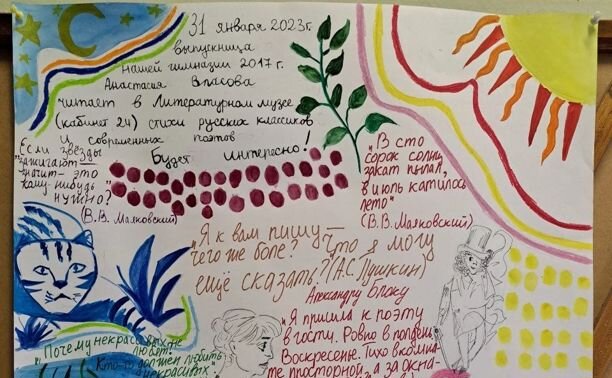 31 января 2023г.
выпускница
нашей гимназии 2017 г.
Анастасия Власова
читает в Литературном музее
(кабинет 24) стихи русских классиков
и современных поэтов
Будет интересно!
Если звёзды
зажигают —
значит — это
кому-нибудь
нужно?"
(В.В. Маяковский)
"В сто
сорок солнц
закат пылал,
в июль катилось
лето"
(В.В. Маяковский)
"Я к вам пишу —
чего же боле? Что я могу
ещё сказать?" (А.С. Пушкин)
Александру Блоку
"Я пришла к поэту
в гости. Ровно в полдень.
Воскресенье. Тихо в комна-
те просторной, а за окна-
"Почему некрасивых не
любят?
Кто-то должен любить
некрасивых"